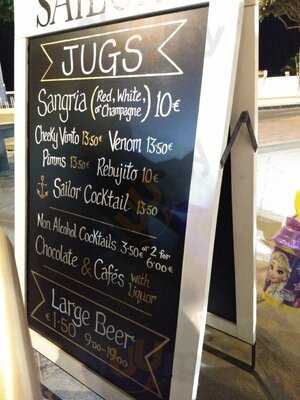 SAILOR
JUGS
Sangria (Red, White, or Champagne) 10€
Cheeky Vimto 13·50€ Venom 13·50€
Pimms 13·50€ Rebujito 10€
Sailor Cocktail 13·50
Non Alcohol Cocktails 3·50€ or 2 for 6·00€
Chocolate & Cafés with Liquor
Large Beer
€1·50 9:00-19:00